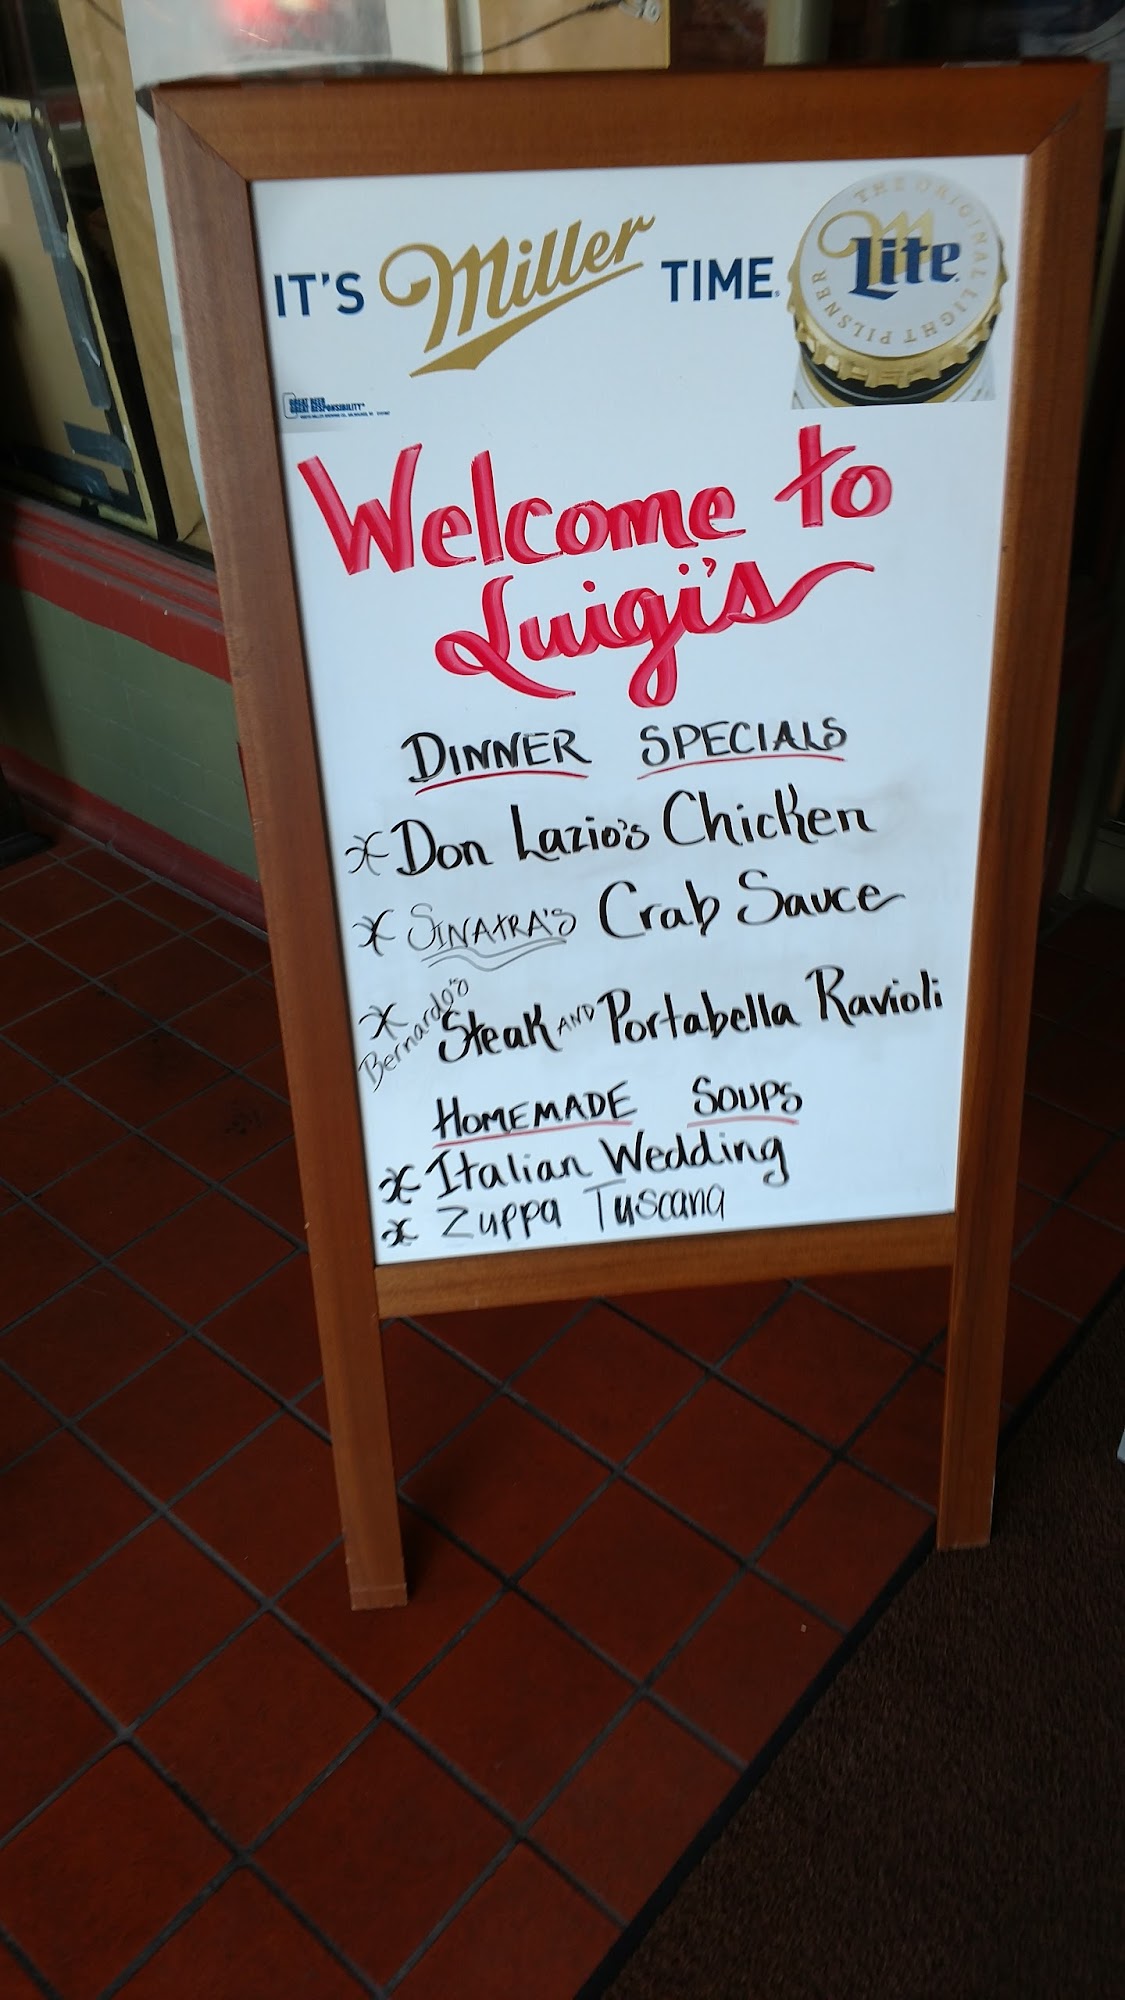 IT'S Miller TIME.
THE ORIGINAL LIGHT PILSNER
Lite
GREAT BEER
GREAT RESPONSIBILITY
Welcome to
Luigi's
DINNER SPECIALS
Don Lazio's Chicken
SINATRA'S Crab Sauce
Bernardo's Steak AND Portabella Ravioli
HOMEMADE SOUPS
Italian Wedding
Zuppa Tuscana